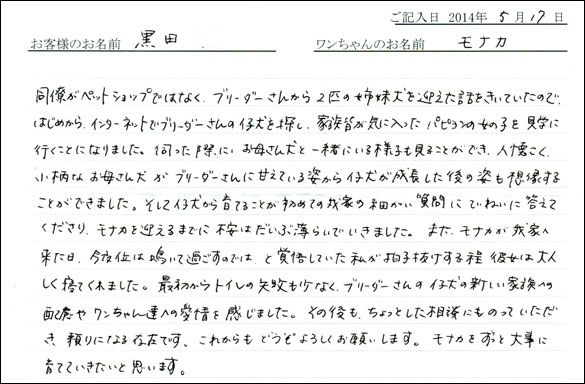 ご記入日 2014年 5月17日
お客様のお名前 黒田 ワンちゃんのお名前 モナカ
同僚がペットショップではなく、ブリーダーさんから2匹の姉妹犬を迎えた話をきいていたので、
はじめから、インターネットでブリーダーさんの仔犬を探し、家族皆が気に入ったパピヨンの女の子を見学に
行くことになりました。伺った際に、お母さん犬と一緒にいる様子も見ることができ、人懐こく、
小柄なお母さん犬がブリーダーさんに甘えている姿から仔犬が成長した後の姿も想像する
ことができました。そして仔犬から育てることが初めての我家の細かい質問にていねいに答えて
くださり、モナカを迎えるまでに不安はだいぶ薄らいでいきました。また、モナカが我家へ
来た日、今夜位は鳴いて過ごすのでは、と覚悟していた私が拍子抜けする程 彼女は大人
しく寝てくれました。最初からトイレの失敗も少なく、ブリーダーさんの仔犬の新しい家族への
配慮やワンちゃん達への愛情を感じました。その後も、ちょっとした相談にものっていただ
き、頼りになる存在です。これからもどうぞよろしくお願いします。モナカをずっと大事に
育てていきたいと思います。